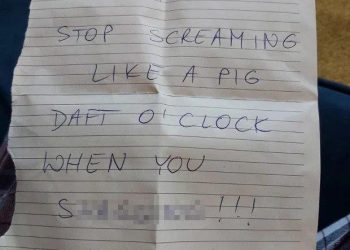 STOP SCREAMING
LIKE A PIG
DAFT O'CLOCK
WHEN YOU
S !!!